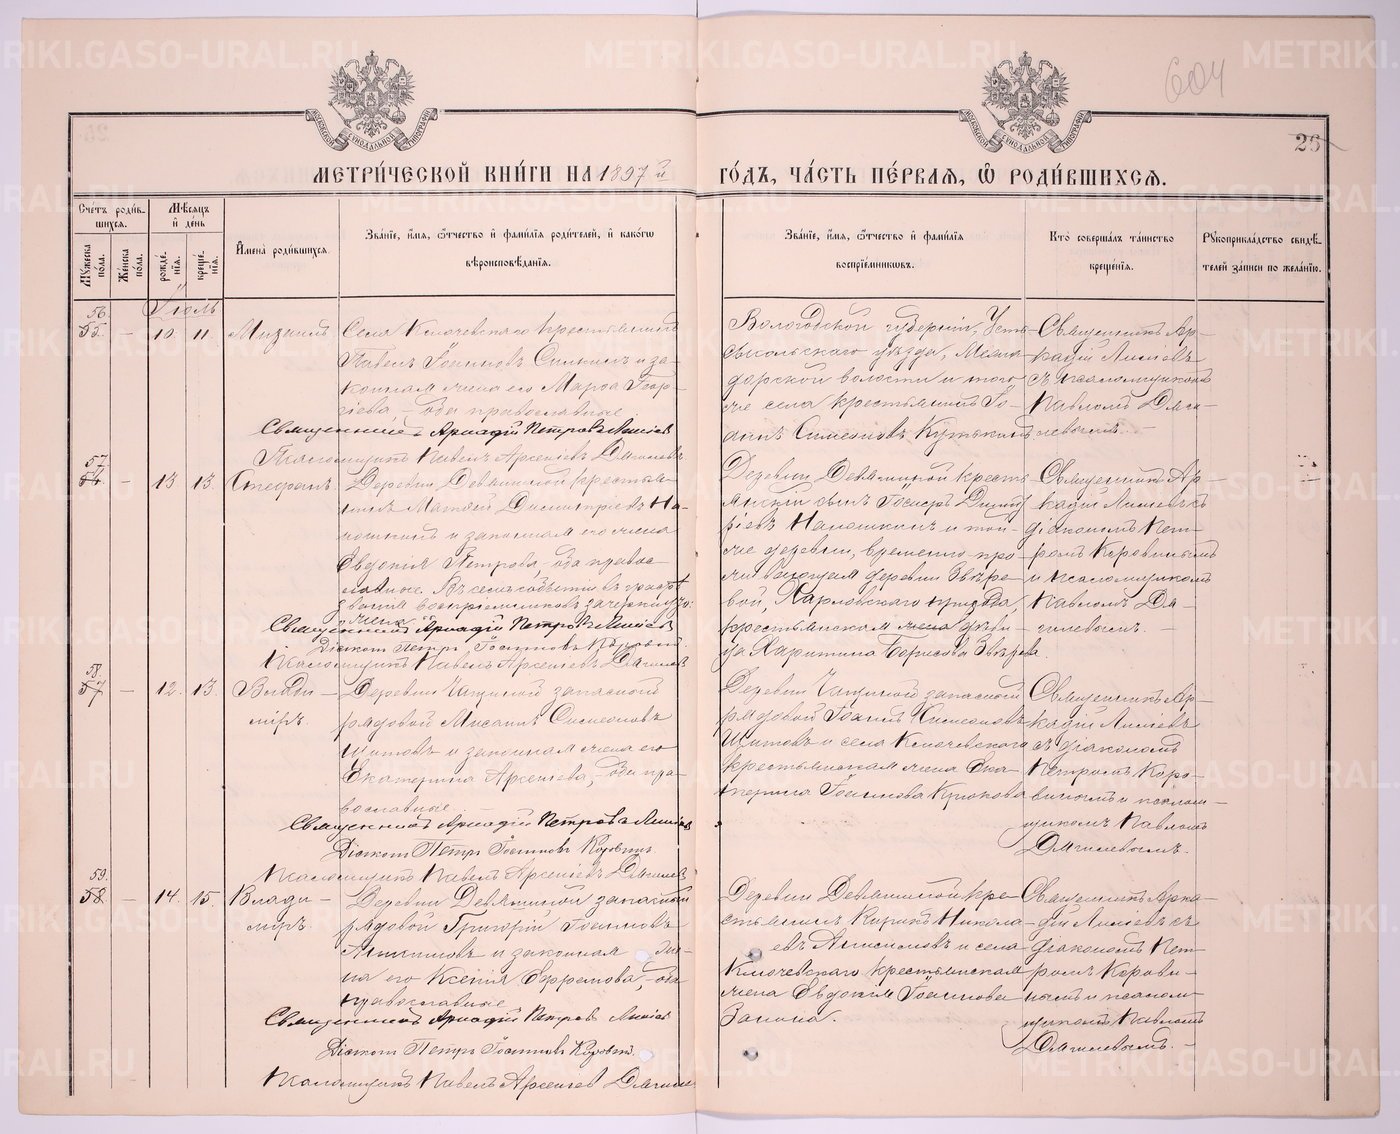 604
26
МЕТРИ́ЧЕСКОЙ КНИ́ГИ НА 1897й ГО́ДЪ, ЧА́СТЬ ПЕ́РВАЯ, Ѡ РОДИ́ВШИХСЯ.
Сче́тъ роди́вшихся.
Мѣ́сяцъ и́ де́нь
Му́жеска по́ла.
Же́нска по́ла.
рожде́нія.
креще́нія.
И́мена̀ роди́вшихся.
Зва́ніе, и́мя, о́тчество и́ фами́лія роди́телей, и́ како́гѡ
вѣроисповѣ́данія.
Зва́ніе, и́мя, о́тчество и́ фами́лія
воспріе́мниковъ.
Кто̀ соверша́лъ та́инство
креще́нія.
Рукоприкла́дство свидѣ́-
телей за́писи по жела́нію.
Іюль
56.
55. — 10. 11. Мизаилъ
Села Ключевскаго крестьянинъ
Павелъ Іоанновъ и за-
конная жена его Марѳа Геор-
гіева, — оба православные
Священникъ Аркадій Петровъ
Псаломщикъ Павелъ Арсеніевъ Дягилевъ
Вологодской губерніи, Усть-
сысольскаго уѣзда,
волости и того
же села крестьянинъ Іо-
аннъ Симеоновъ
Священникъ Ар-
кадій
съ псаломщикомъ
Павломъ Дяги-
левымъ. —
57.
56. — 13 13. Стефанъ
Деревни Девяшиной крестья-
нинъ Матѳей Димитріевъ На-
и законная его жена
Евдокія Петрова, оба правос-
лавные. въ графѣ
званія воспріемниковъ зачеркнуто:
жена
Священникъ Аркадій Петровъ
Діаконъ Петръ Іоанновъ Коровинъ.
Псаломщикъ Павелъ Арсеніевъ Дягилевъ
Деревни Девяшиной кресть-
янскій сынъ Димит-
ріевъ и той-
же деревни, временно про-
живающая деревни Звѣре-
вой, Харловскаго прихода,
крестьянская жена дѣви-
ца Харитина Борисова Звѣрева.
Священникъ Ар-
кадій съ
діакономъ Пет-
ромъ Коровинымъ
и псаломщикомъ
Павломъ Дя-
гилевымъ. —
58.
57. — 12. 13. Влади-
міръ.
Деревни запасной
рядовой Симеоновъ
Щитовъ и законная жена его
Екатерина Арсеніева, — оба пра-
вославные.
Священникъ Аркадій Петровъ
Діаконъ Петръ Іоанновъ Коровинъ.
Псаломщикъ Павелъ Арсеніевъ Дягилевъ
Деревни запасной
рядовой Іоаннъ Симеоновъ
Щитовъ и села Ключевскаго
крестьянская жена Ека-
терина Іоаннова Крюкова
Священникъ Ар-
кадій
съ діакономъ
Петромъ Коро-
винымъ и псалом-
щикомъ Павломъ
Дягилевымъ.
59.
58. — 14. 15. Влади-
міръ.
Деревни Девяшиной запасной
рядовой Григорій Іоанновъ
и законная же-
на его Ксенія Ефремова, — оба
православные
Священникъ Аркадій Петровъ
Діаконъ Петръ Іоанновъ Коровинъ.
Псаломщикъ Павелъ Арсеніевъ Дягилевъ
Деревни Девяшиной кре-
стьянинъ Никола-
евъ и села
Ключевскаго крестьянская
жена Евдокія Іоаннова
Священникъ Арка-
дій съ
діакономъ Пет-
ромъ Корови-
нымъ и псалом-
щикомъ Павломъ
Дягилевымъ. —